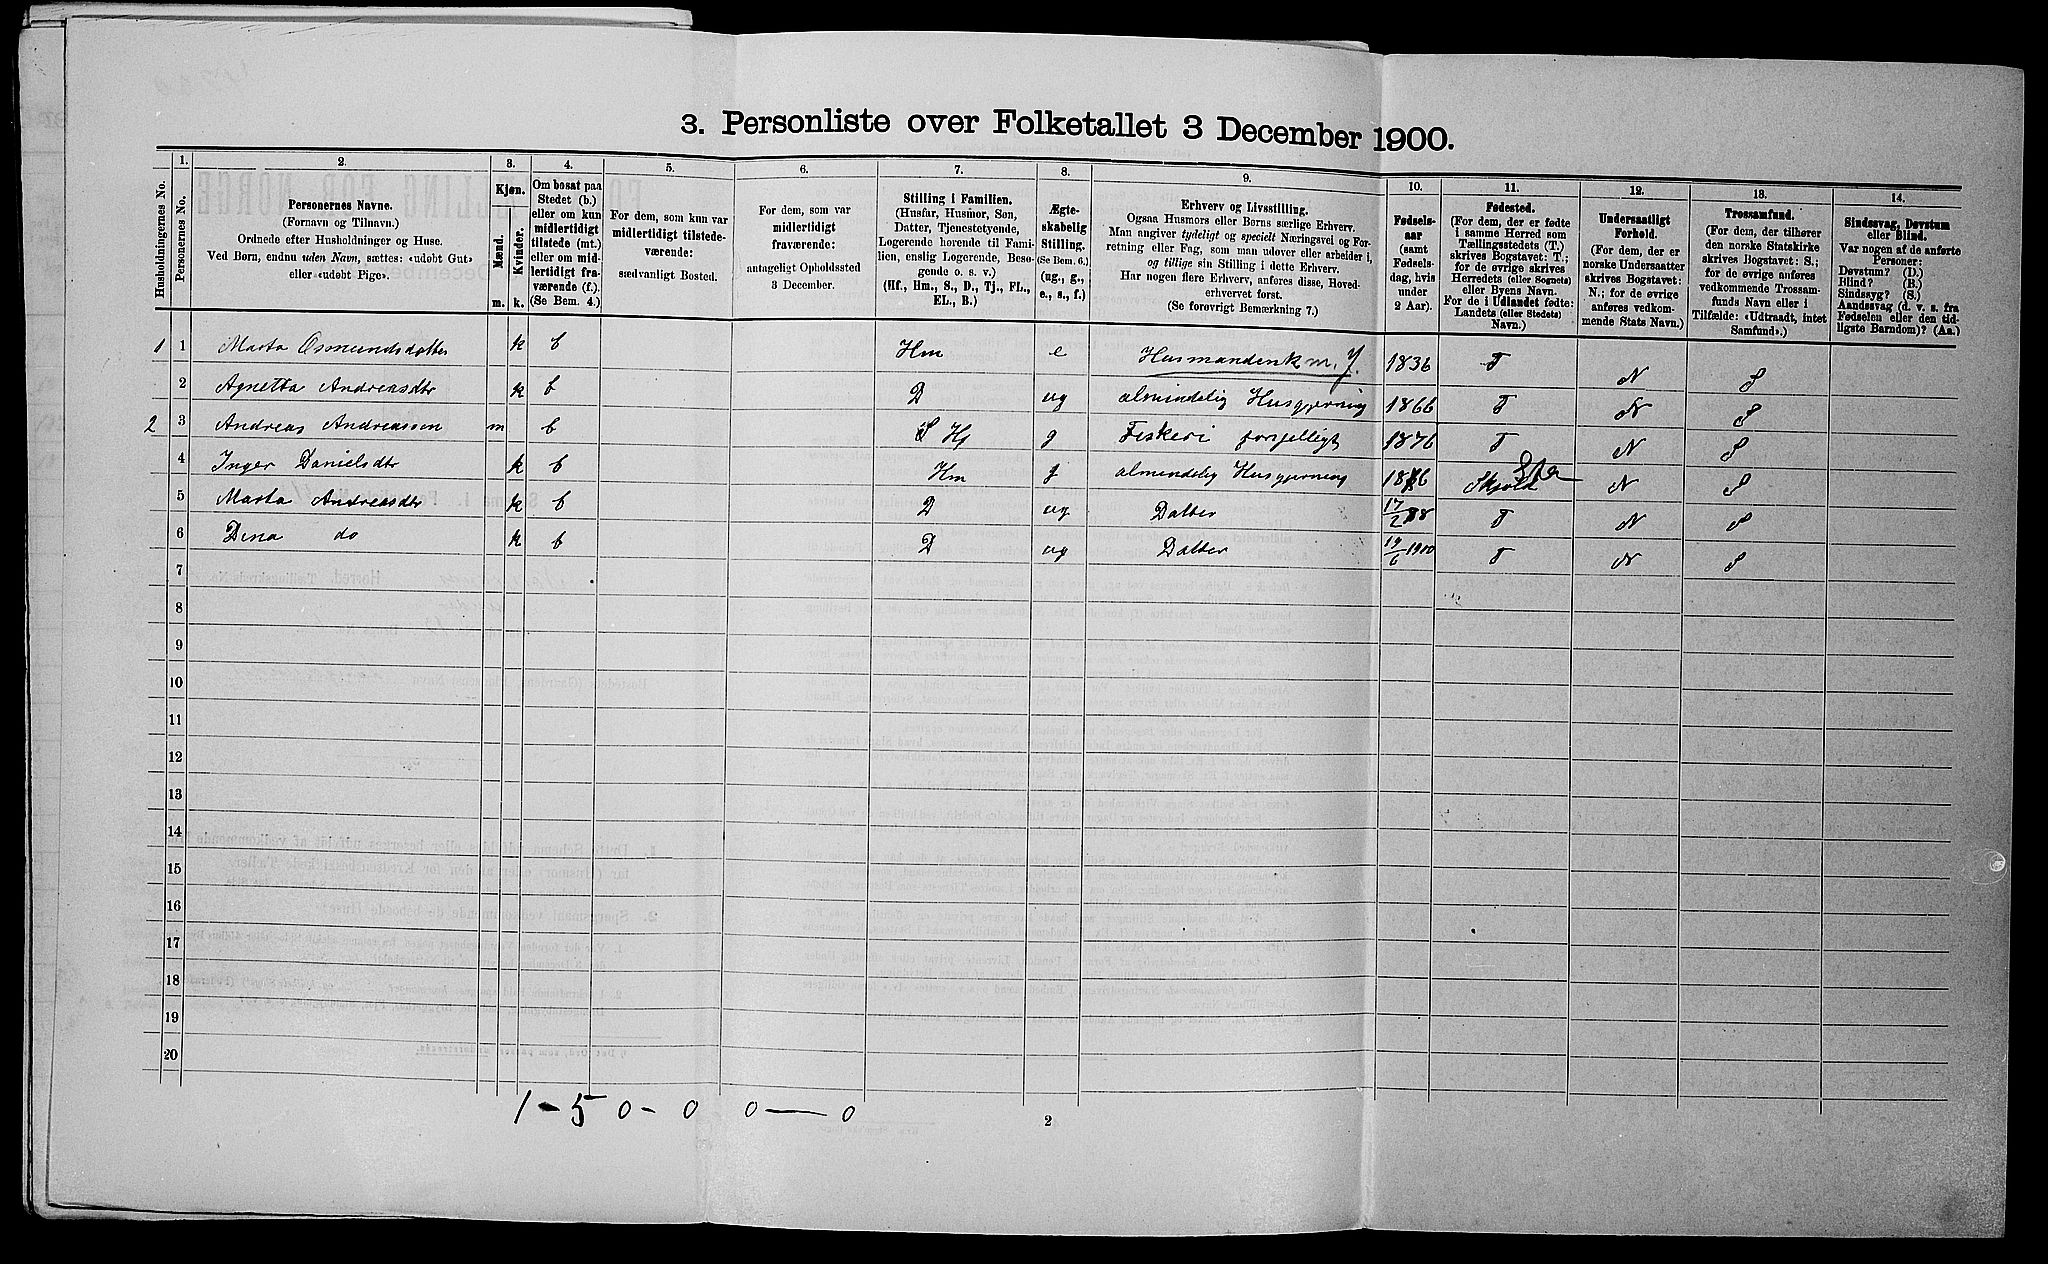 3. Personliste over Folketallet 3 December 1900.
Husholdningernes No.
1.
Personernes No.
2.
Personernes Navne.
(Fornavn og Tilnavn.)
Ordnede efter Husholdninger og Huse.
Ved Børn, endnu uden Navn, sættes: «udøbt Gut»
eller «udøbt Pige».
3.
Kjøn.
Mænd.
Kvinder.
m. k.
4.
Om bosat paa
Stedet (b.)
eller om kun
midlertidigt
tilstede (mt.)
eller om mid-
lertidigt fra-
værende (f.).
(Se Bem. 4.)
5.
For dem, som kun var
midlertidigt tilstede-
værende:
sædvanligt Bosted.
6.
For dem, som var
midlertidigt
fraværende:
antageligt Opholdssted
3 December.
7.
Stilling i Familien.
(Husfar, Husmor, Søn,
Datter, Tjenestetyende,
Logerende hørende til Fami-
lien, enslig Logerende, Besø-
gende o. s. v.)
(Hf., Hm., S., D., Tj., FL.,
EL., B.)
8.
Ægte-
skabelig
Stilling.
(Se Bem. 6.)
(ug., g.,
e., s., f.)
9.
Erhverv og Livsstilling.
Ogsaa Husmors eller Børns særlige Erhverv.
Man angiver tydeligt og specielt Næringsvei og For-
retning eller Fag, som man udøver eller arbeider i,
og tillige sin Stilling i dette Erhverv.
Har nogen flere Erhverv, anføres disse, Hoved-
erhvervet først.
(Se forøvrigt Bemærkning 7.)
10.
Fødsels-
aar
(samt
Fødsels-
dag, hvis
under
2 Aar).
11.
Fødested.
(For dem, der er fødte
i samme Herred som
Tællingsstedets (T.)
skrives Bogstavet: T.;
for de øvrige skrives
Herredets (eller Sognets)
eller Byens Navn.
For de i Udlandet fødte:
Landets (eller Stedets)
Navn.)
12.
Undersaatligt
Forhold.
(For dem, der er
norske Undersaatter
skrives Bogstavet:
N.; for de øvrige
anføres vedkom-
mende Stats Navn.)
13.
Trossamfund.
(For dem, der tilhører
den norske Statskirke
skrives Bogstavet: S.;
for de øvrige anføres
vedkommende Trossam-
funds Navn eller i
Tilfælde: «Udtraadt, intet
Samfund».)
14.
Sindssvag, Døvstum
eller Blind.
Var nogen af de anførte
Personer:
Døvstum? (D.)
Blind? (B.)
Sindssyg? (S.)
Aandssvag (d. v. s. fra
Fødselen eller den tid-
ligste Barndom)? (Aa.)
1 1 Marta Osmundsdatter k b Hm e Husmandenk m. J. 1836 T N S
2 Agnetta Andreasdtr k b D ug almindelig Husgjerning 1866 T N S
2 3 Andreas Andreassen m b S Hf g Fiskeri forsjelligt 1876 T N S
4 Inger Danielsdtr k b Hm g almendelig Husgjerning 1876 Skjold Sta N S
5 Marta Andreasdtr k b D ug Datter 17/2 98 T N S
6 Dina do k b D ug Datter 19/6 1900 T N S
7
8
9
10
11
12
13
14
15
16
17
18
19
20
1 - 5 0 - 0 0 — 0
2